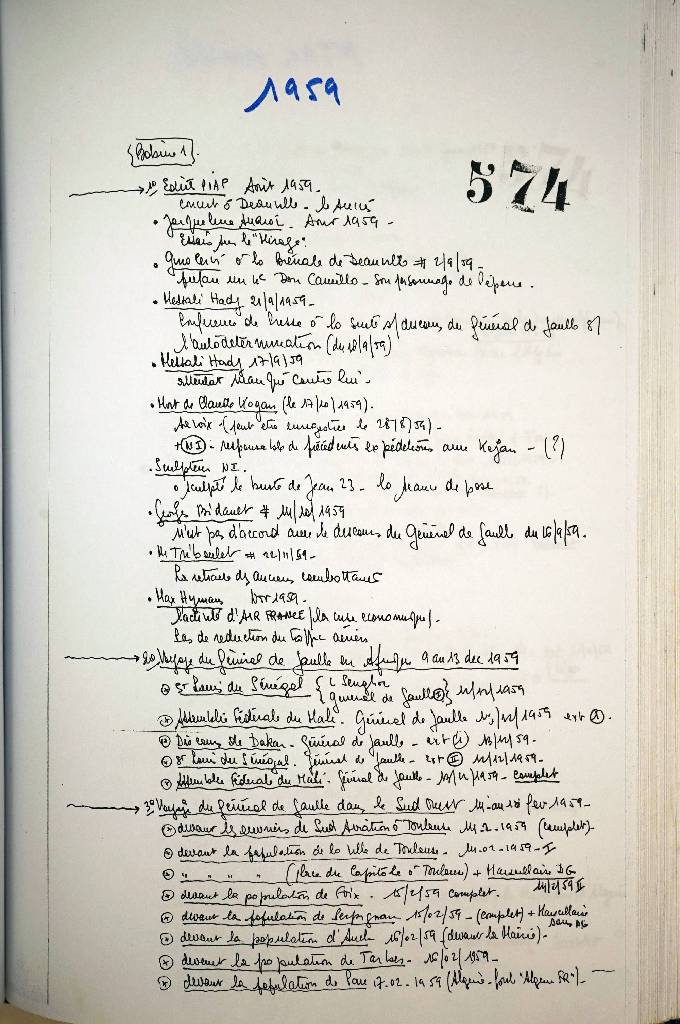 1959
574
{Bobine 1}.
1° Edith PIAF Août 1959.
Concert à Deauville - le succès
• Jacqueline Auriol. Août 1959 -
Essais sur le "Mirage".
• Gino Cervi à la Biennale de Deauville # 2/9/59 -
prépare un 4e Don Camillo - son personnage de Pépone.
• Messali Hadj 21/9/1959 -
Conférence de Presse à la suite s/ discours du Général de Gaulle s/
l'autodétermination (du 18/9/59)
• Messali Hadj 17/9/59
attentat manqué contre lui -
• Mort de Claude Kogan (le 17/10/1959).
Sa voix - (peut être enregistrée le 28/8/59) -
+ (NI) : responsable de précédents expéditions avec Kogan - (?)
• Sculpteur NI.
a sculpté le buste de Jean 23 - la séance de pose
• Georges Bidault # 14/10/1959
n'est pas d'accord avec le discours du Général de Gaulle du 16/9/59.
• M. Triboulet # 22/11/59 -
La retraite des anciens combattants
• Max Hymans Nov 1959 -
l'activité d'AIR FRANCE / la crise économique / -
Pas de réduction du traffic aérien
2° Voyage du Général de Gaulle en Afrique 9 au 13 dec 1959
St Louis du Sénégal { L. Senghor
Général de Gaulle } 12/12/1959
Assemblée Fédérale du Mali. Général de Gaulle /12/1959 ext (1).
Discours de Dakar - Général de Gaulle - ext (I) 13/12/59 -
St Louis du Sénégal. Général de Gaulle - ext (II) 12/12/1959 -
Assemblée Fédérale du Mali. Général de Gaulle - 13/12/1959 - complet
3° Voyage du Général de Gaulle dans le Sud Ouest 14 au 18 fev 1959 -
devant les ouvriers de Sud Aviation à Toulouse 14-2-1959 (complet) -
devant la population de la Ville de Toulouse - 14-02-1959 - I
" " " " (Place du Capitole à Toulouse) + Marseillaise DG
14/2/59 II
devant la population de Foix. 15/2/59 complet.
devant la population de Perpignan 15/02/59 - (complet) + Marseillaise
sans DG
devant la population d'Auch 16/02/59 (devant la Mairie) -
devant la population de Tarbes - 16/02/1959 -
devant la population de Pau 17-02-1959 (Algérie - "Algérie FR") -